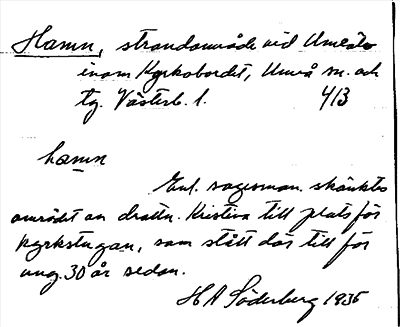 Hamn, strandområde vid Umeälv
inom Kyrkobordet, Umeå sn. och
tg. Västerb. l. 413
hamn
Enl. sagesman. skänktes
området av drottn. Kristina till plats för
kyrkstugan, som stått där till för
ung. 30 år sedan.
H A Söderberg 1935